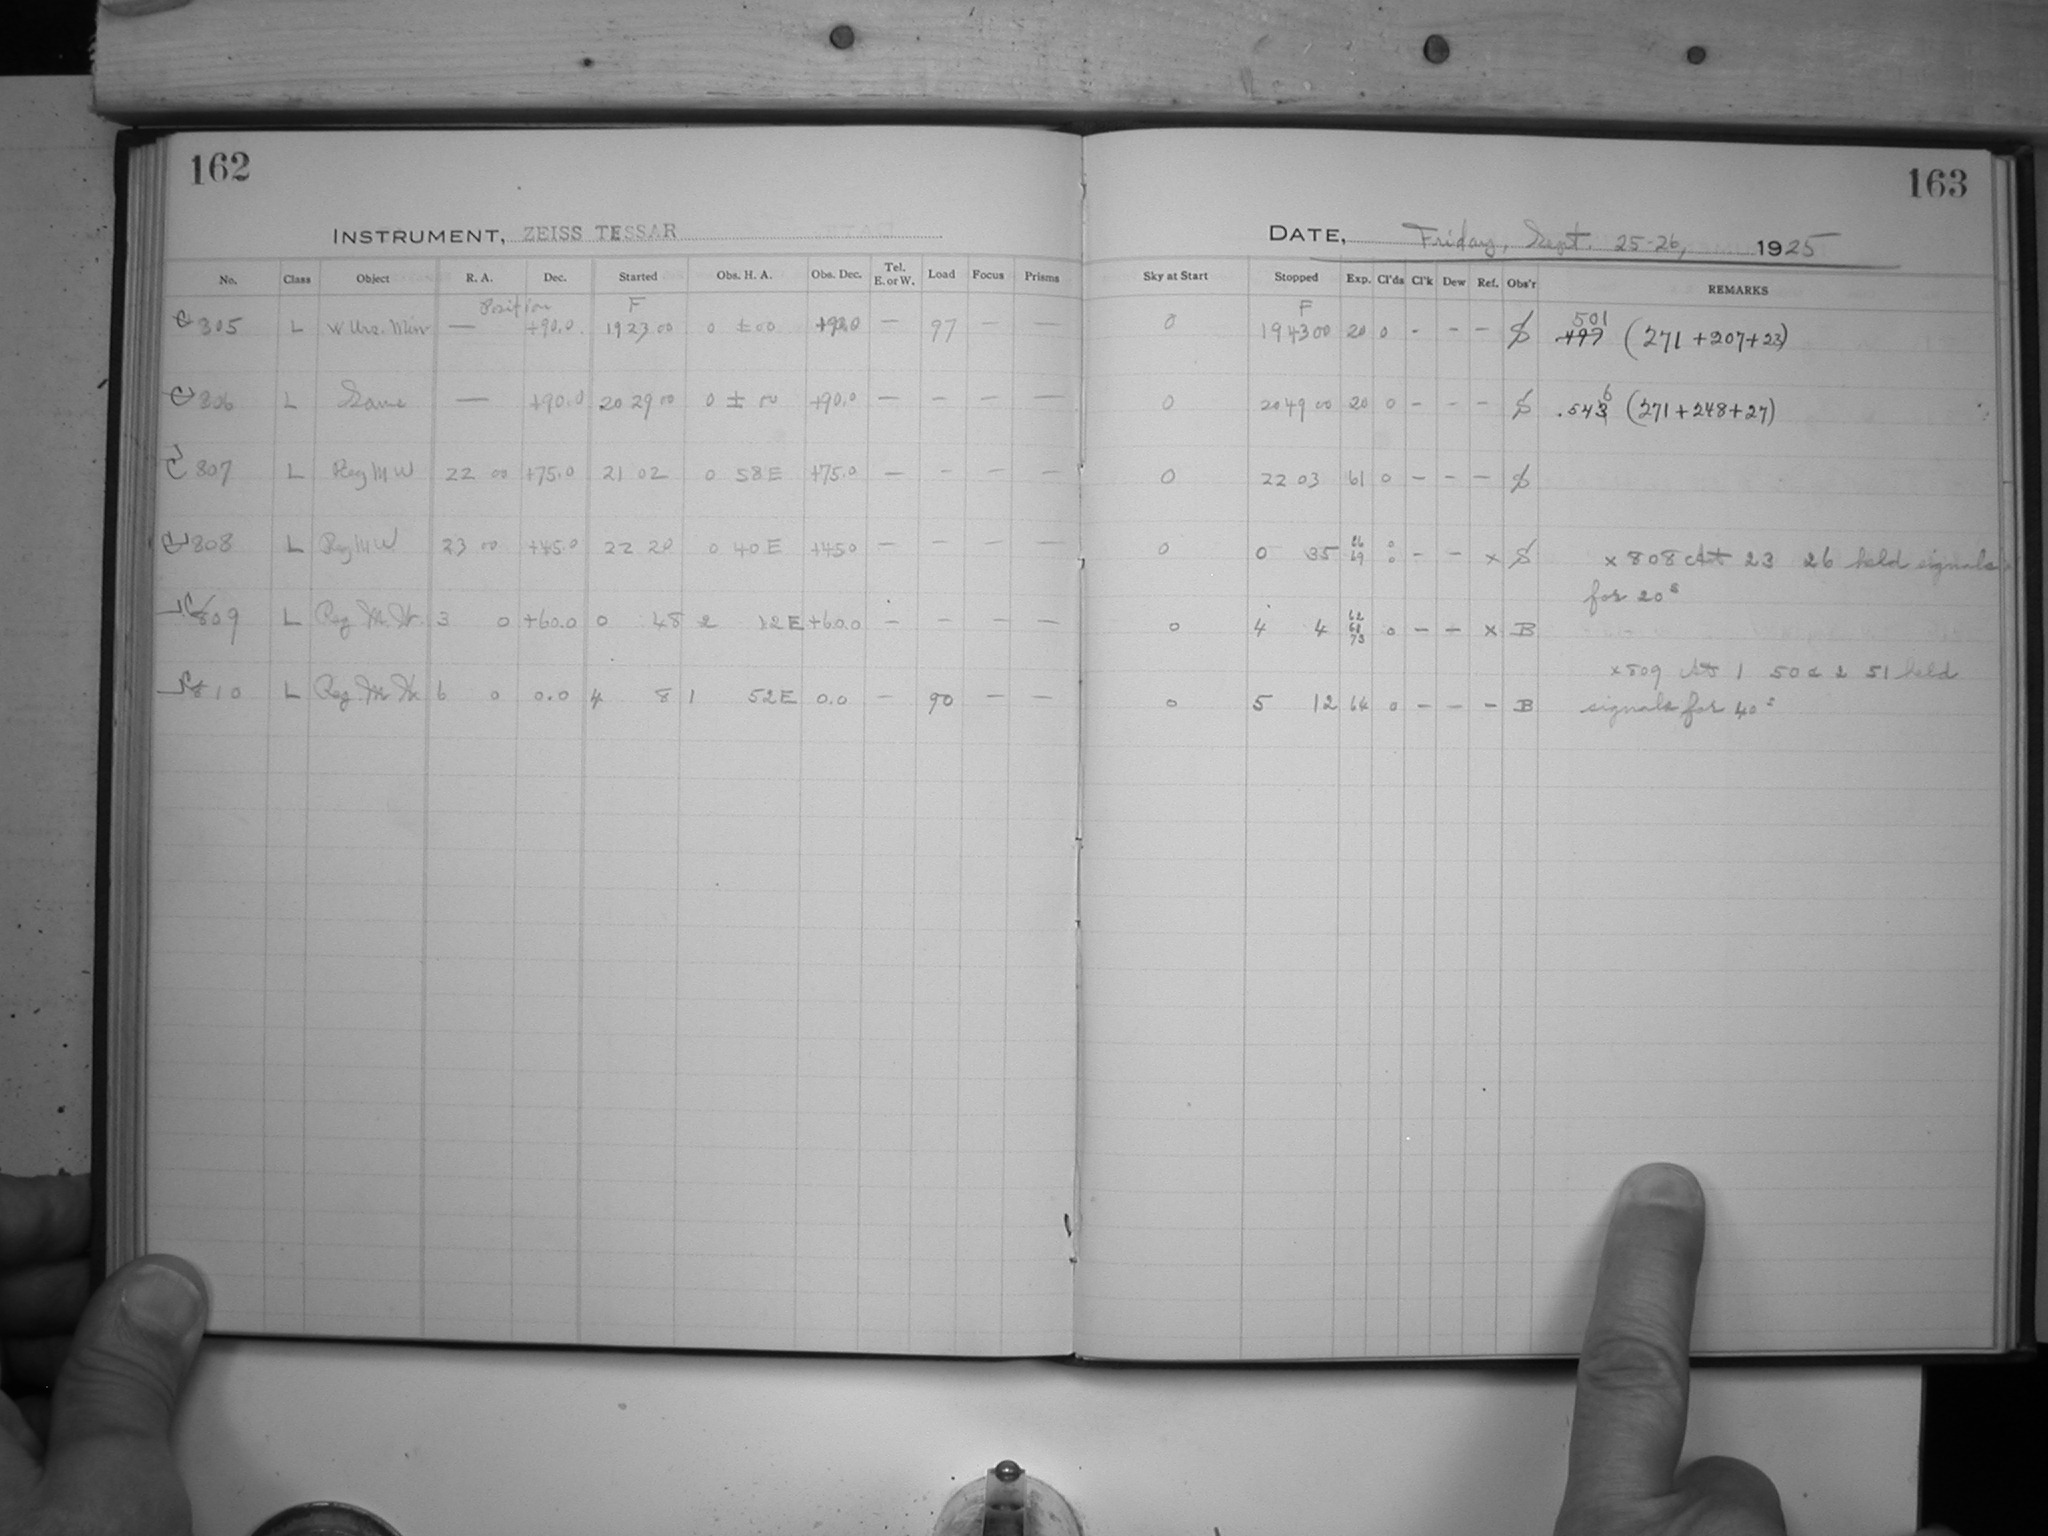 162
163
INSTRUMENT, ZEISS TESSAR
DATE, Friday, Sept. 25-26, 1925
No. Class Object R. A. Dec. Started Obs. H. A. Obs. Dec. Tel. E. or W. Load Focus Prisms
Sky at Start Stopped Exp. Cl'ds Cl'k Dew Ref. Obs'r REMARKS
Position F
F 501
805 L W Urs. Min — +90.0 19 23 00 0 ± 00 +90.0 — 97 — —
0 19 43 00 20 0 - - - S .497 (271+207+23)
806 L Same — +90.0 20 29 00 0 ± 00 +90.0 — — — —
6
0 20 49 00 20 0 - - - S .543 (271+248+27)
807 L Reg M W 22 00 +75.0 21 02 0 58 E +75.0 — — — —
0 22 03 61 0 — — — S
808 L Reg M W 23 00 +45.0 22 20 0 40 E +45.0 — — — —
0 0 35 66 69 0 0 — — x S x 808 At 23 26 held signals
for 20s
809 L Reg M. W. 3 0 +60.0 0 48 2 12 E +60.0 — — — —
0 4 4 62 61 73 0 — — x B
x 809 At 1 50 & 2 51 held
810 L Reg M W 6 0 0.0 4 8 1 52 E 0.0 — 90 — —
0 5 12 64 0 — — — B signals for 40s